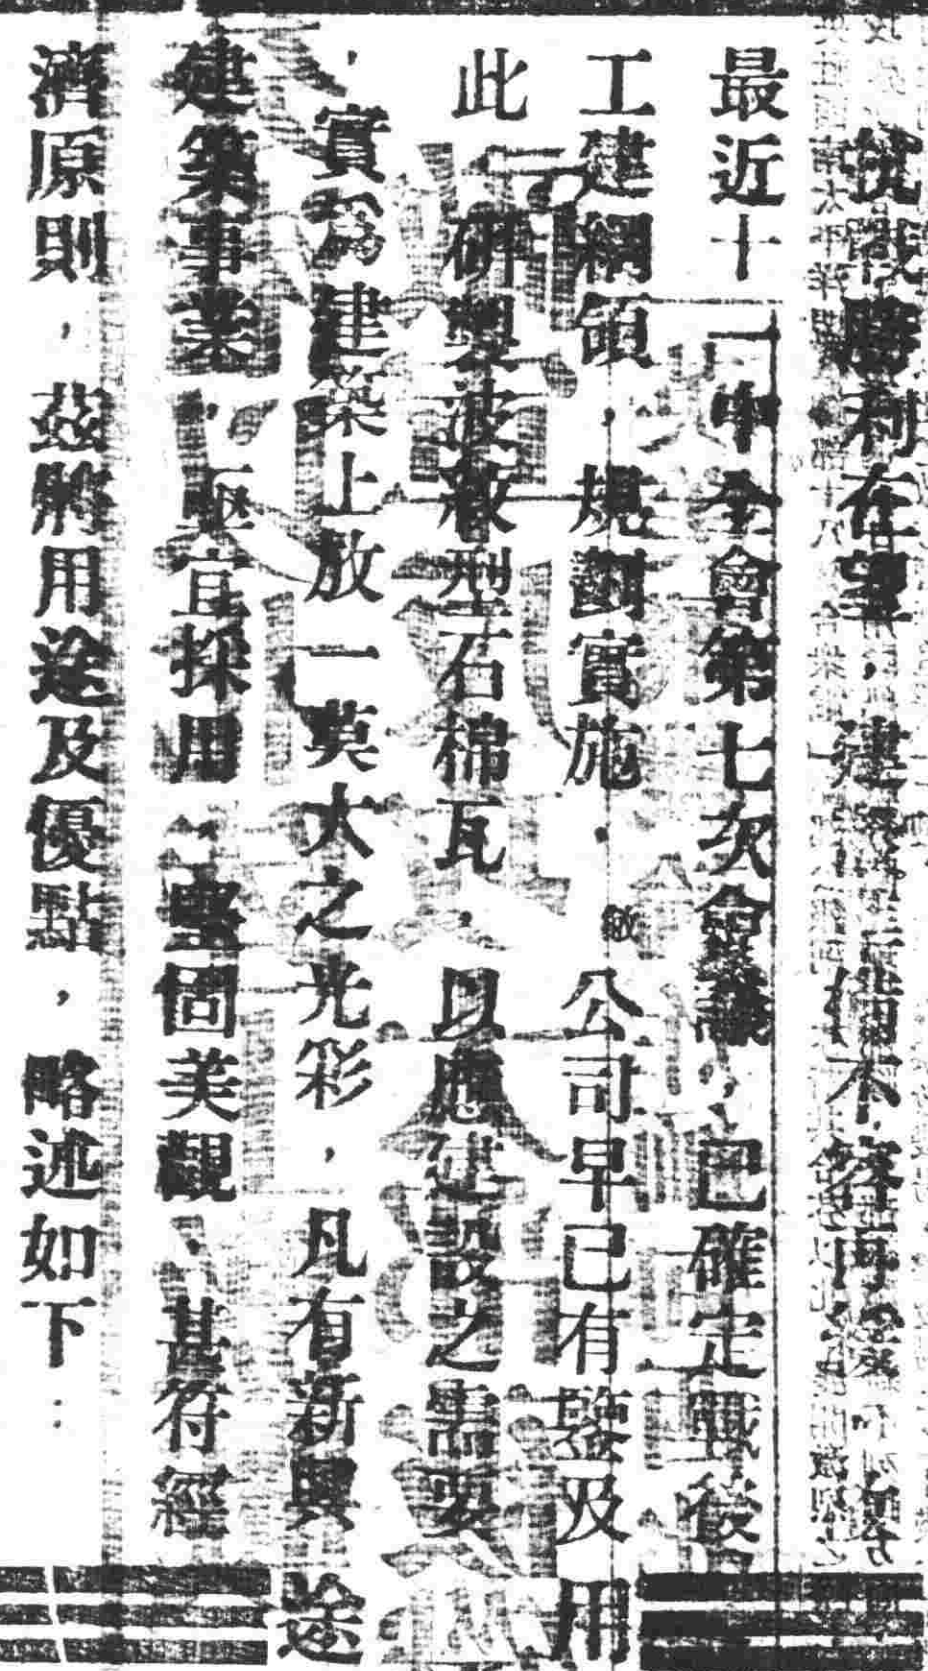 抗戰勝利在望，建築工作不容再緩
最近十一中全會第七次會議，已確定戰後
工建綱領，規劃實施，敝公司早已有鑒及
此，研製波紋型石棉瓦，以應建設之需要
，實爲建築上放一莫大之光彩，凡有新興
建築事業，亟宜採用，堅固美觀，甚符經
濟原則，茲將用途及優點，略述如下：
用途